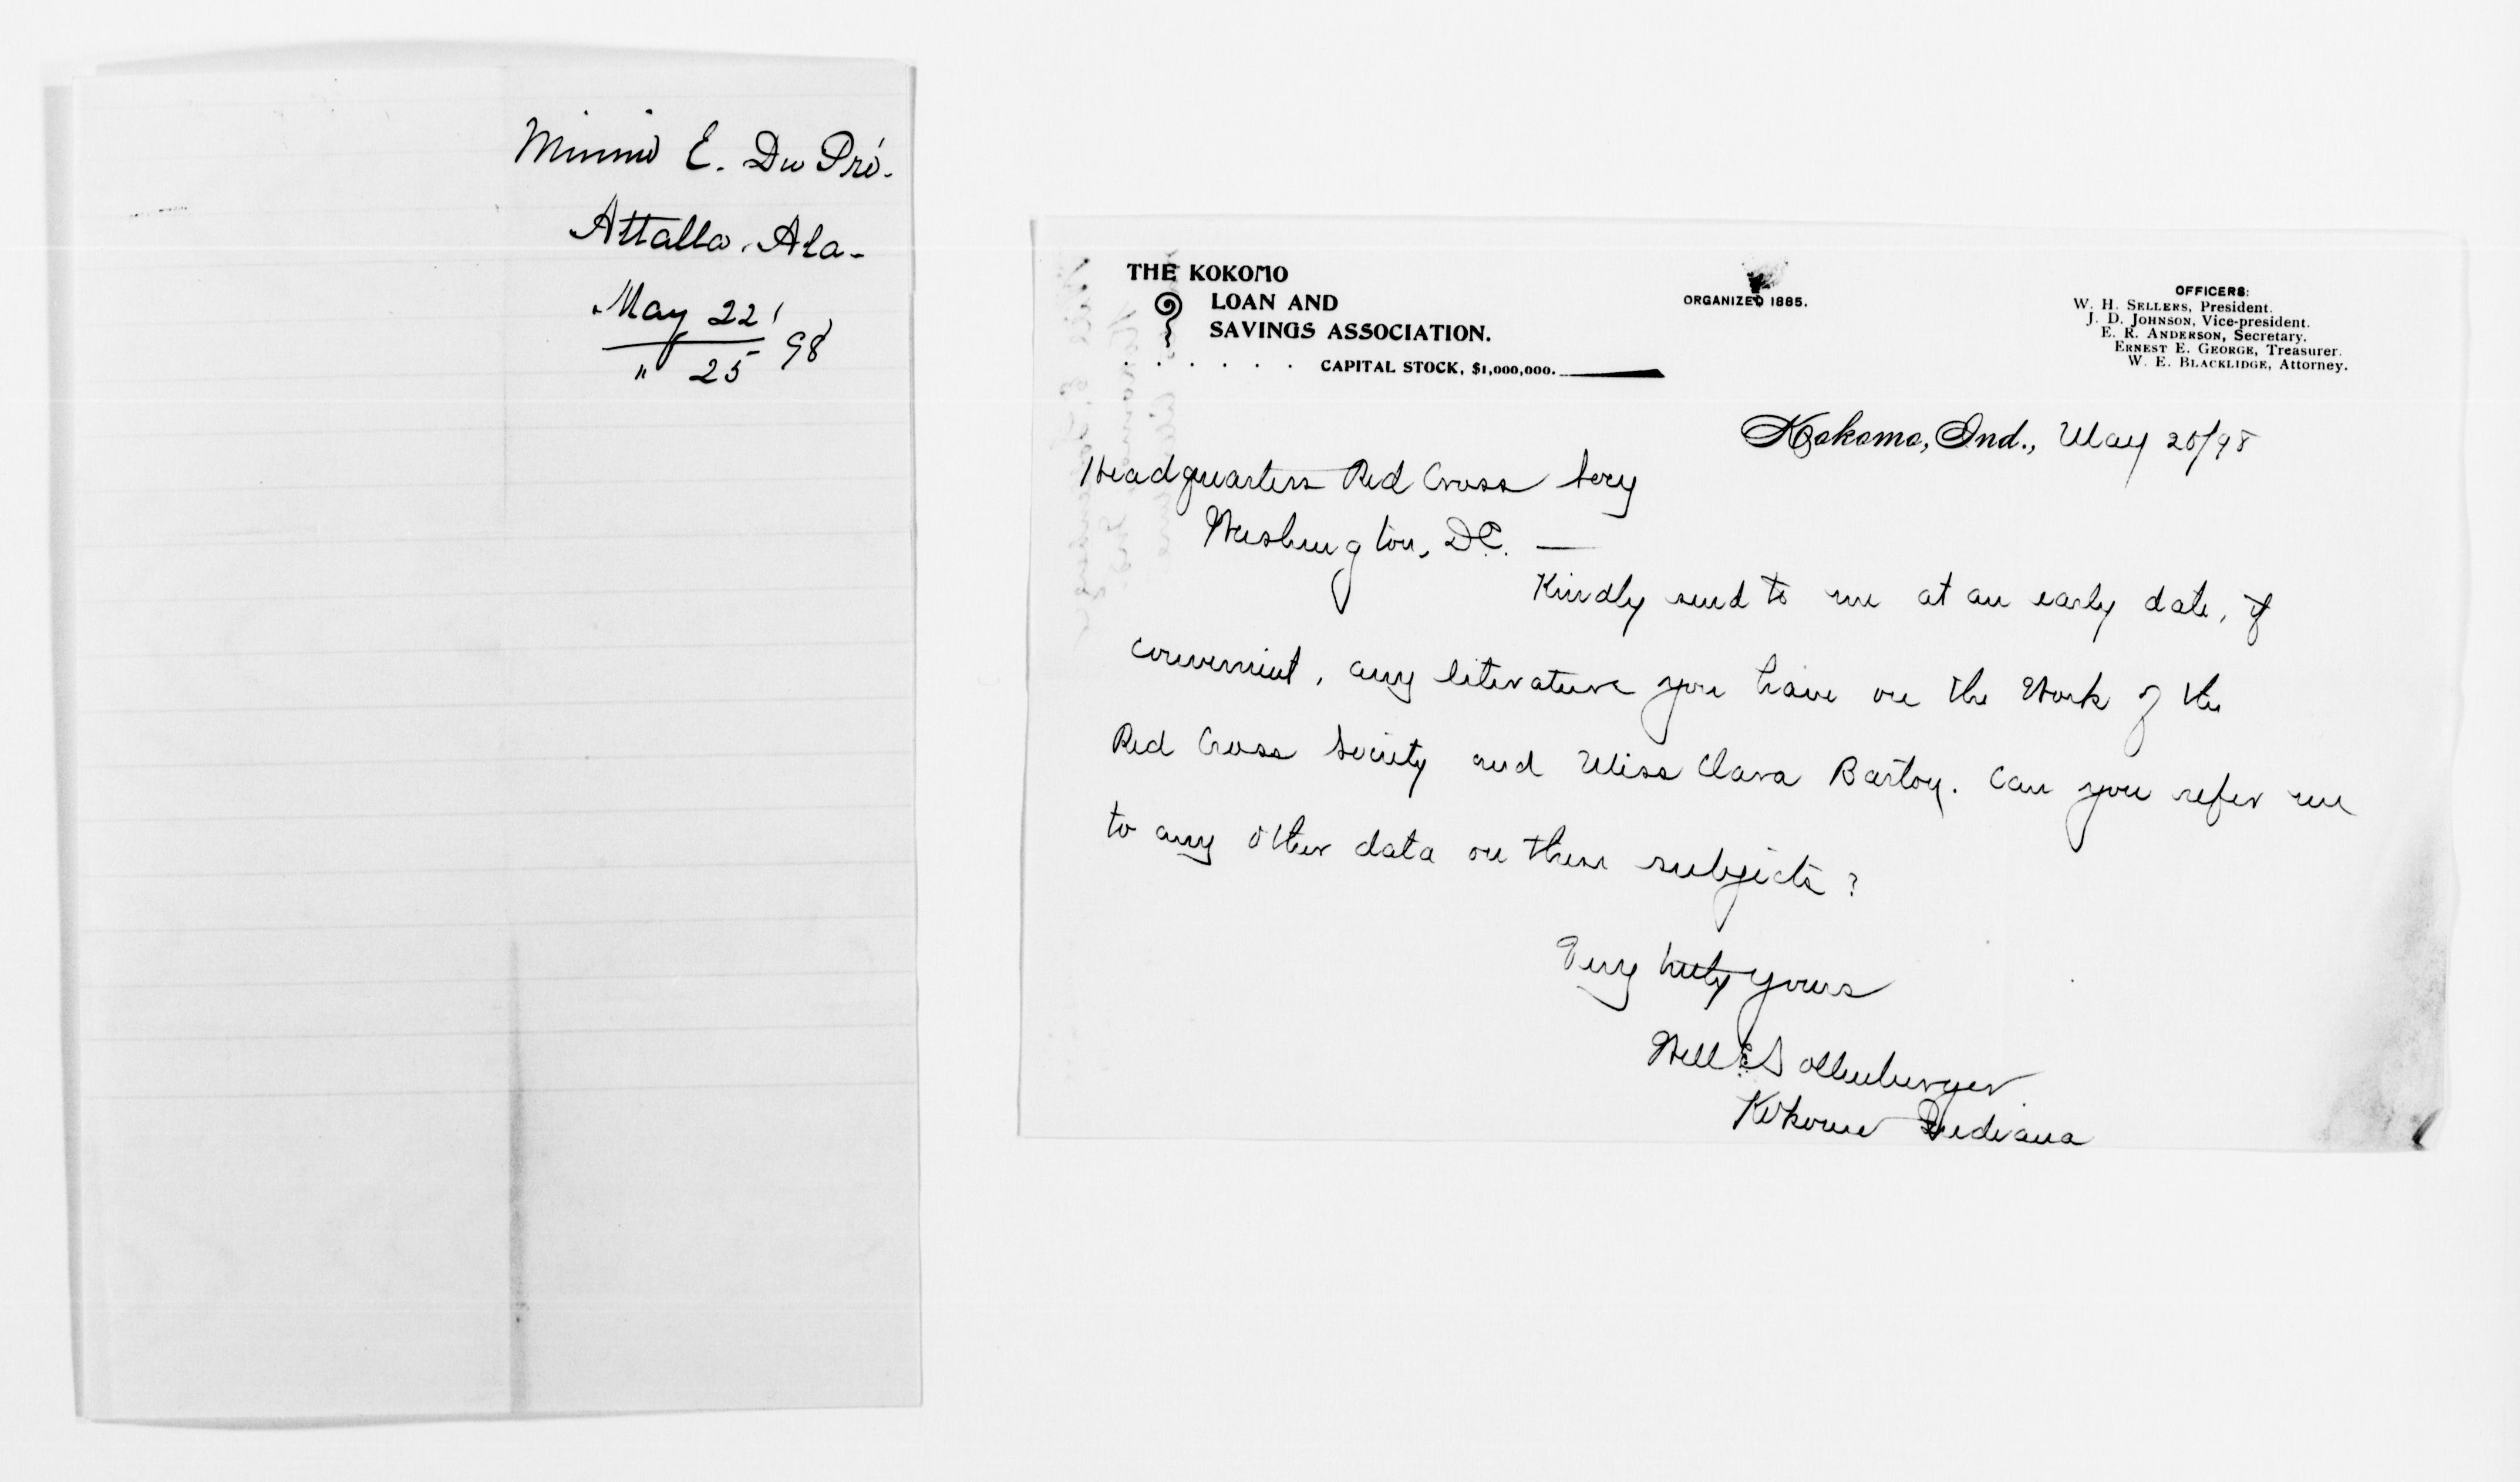 Minnie E. Du Pré.
Attalla. Ala-
May 22'
" 25 98
THE KOKOMO
LOAN AND
SAVINGS ASSOCIATION.
CAPITAL STOCK, $1,000,000.
ORGANIZED 1885.
OFFICERS:
W. H. SELLERS, President.
J. D. JOHNSON, Vice-president.
E. R. ANDERSON, Secretary.
ERNEST E. GEORGE, Treasurer.
W. E. BLACKLIDGE, Attorney.
Kokomo, Ind., May 20/98
Headquarters Red Cross Socy
Washington, D.C. —
Kindly send to me at an early date, if
convenient, any literature you have on the Work of the
Red Cross Society and Miss Clara Barton. Can you refer me
to any other data on these subjects?
Very truly yours
Will
Kokomo Indiana